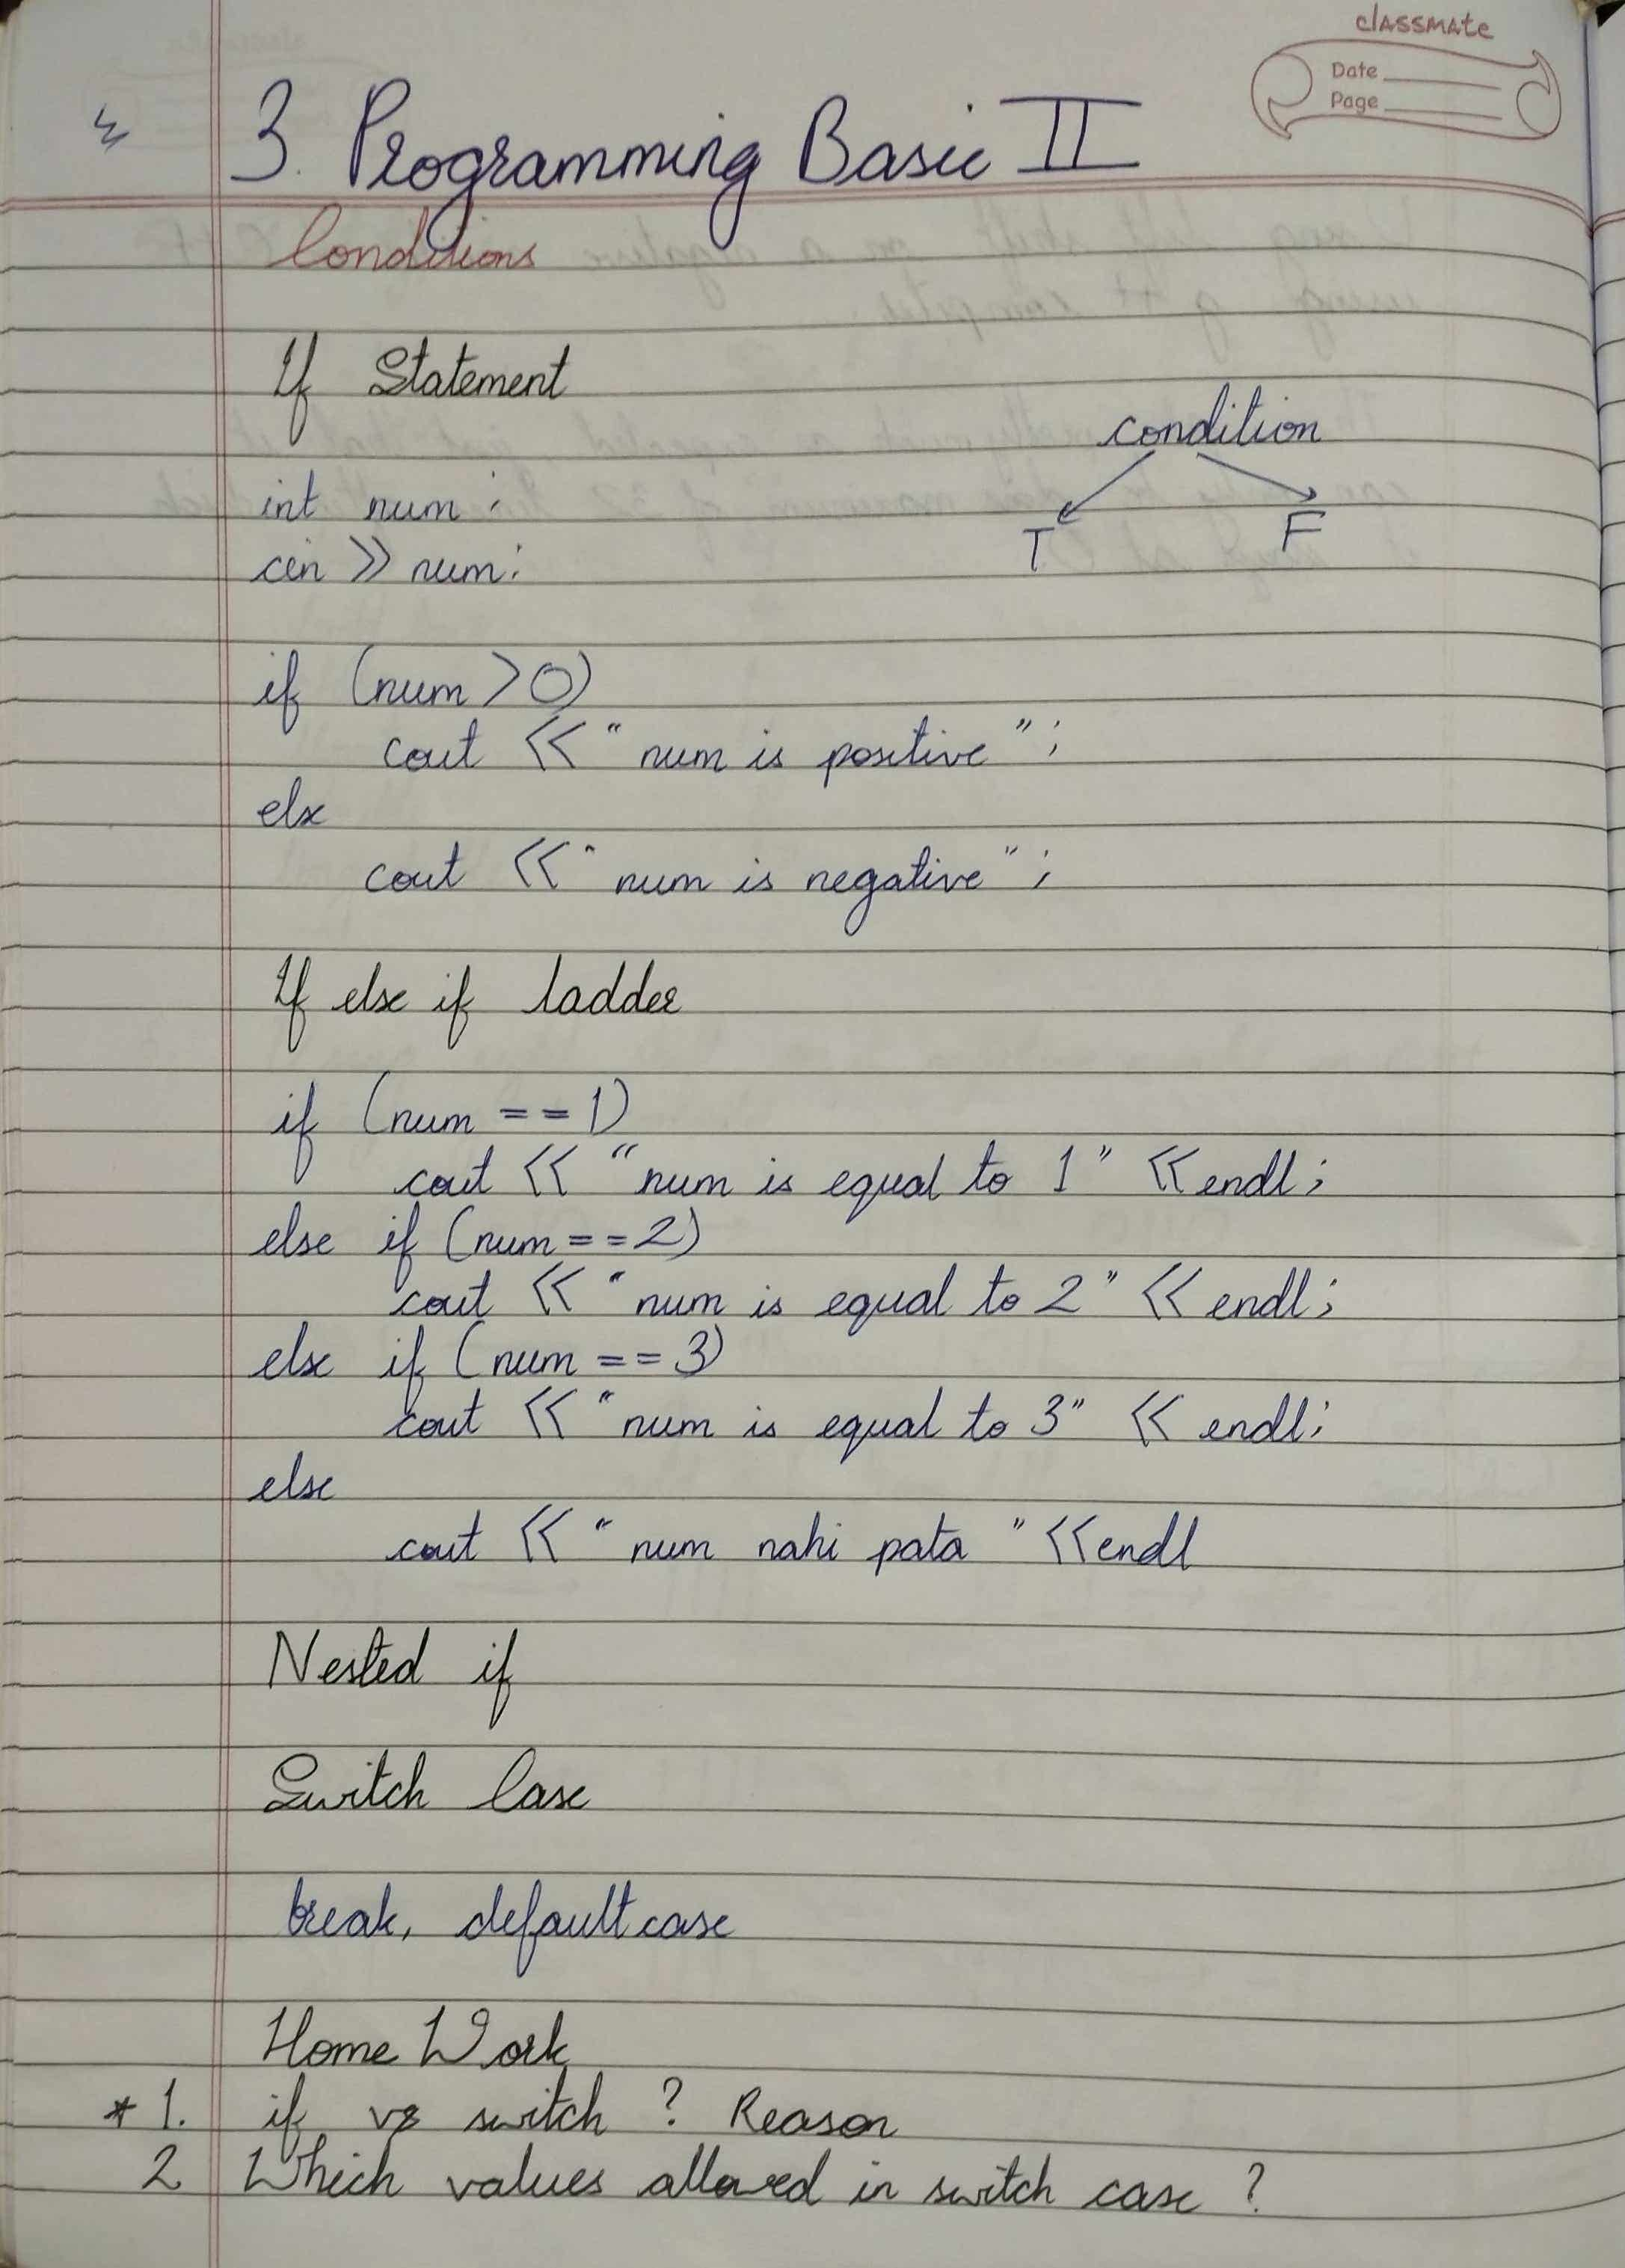 classmate
Date
Page
3. Programming Basic II
Conditions
If Statement
condition
T F
int num ;
cin >> num;
if (num > 0)
cout << "num is positive" ;
else
cout << "num is negative" ;
If else if ladder
if (num == 1)
cout << "num is equal to 1" << endl ;
else if (num == 2)
cout << "num is equal to 2" << endl ;
else if (num == 3)
cout << "num is equal to 3" << endl ;
else
cout << "num nahi pata" << endl
Nested if
Switch Case
break, default case
Home Work
* 1. if vs switch ? Reason
2 Which values allowed in switch case ?